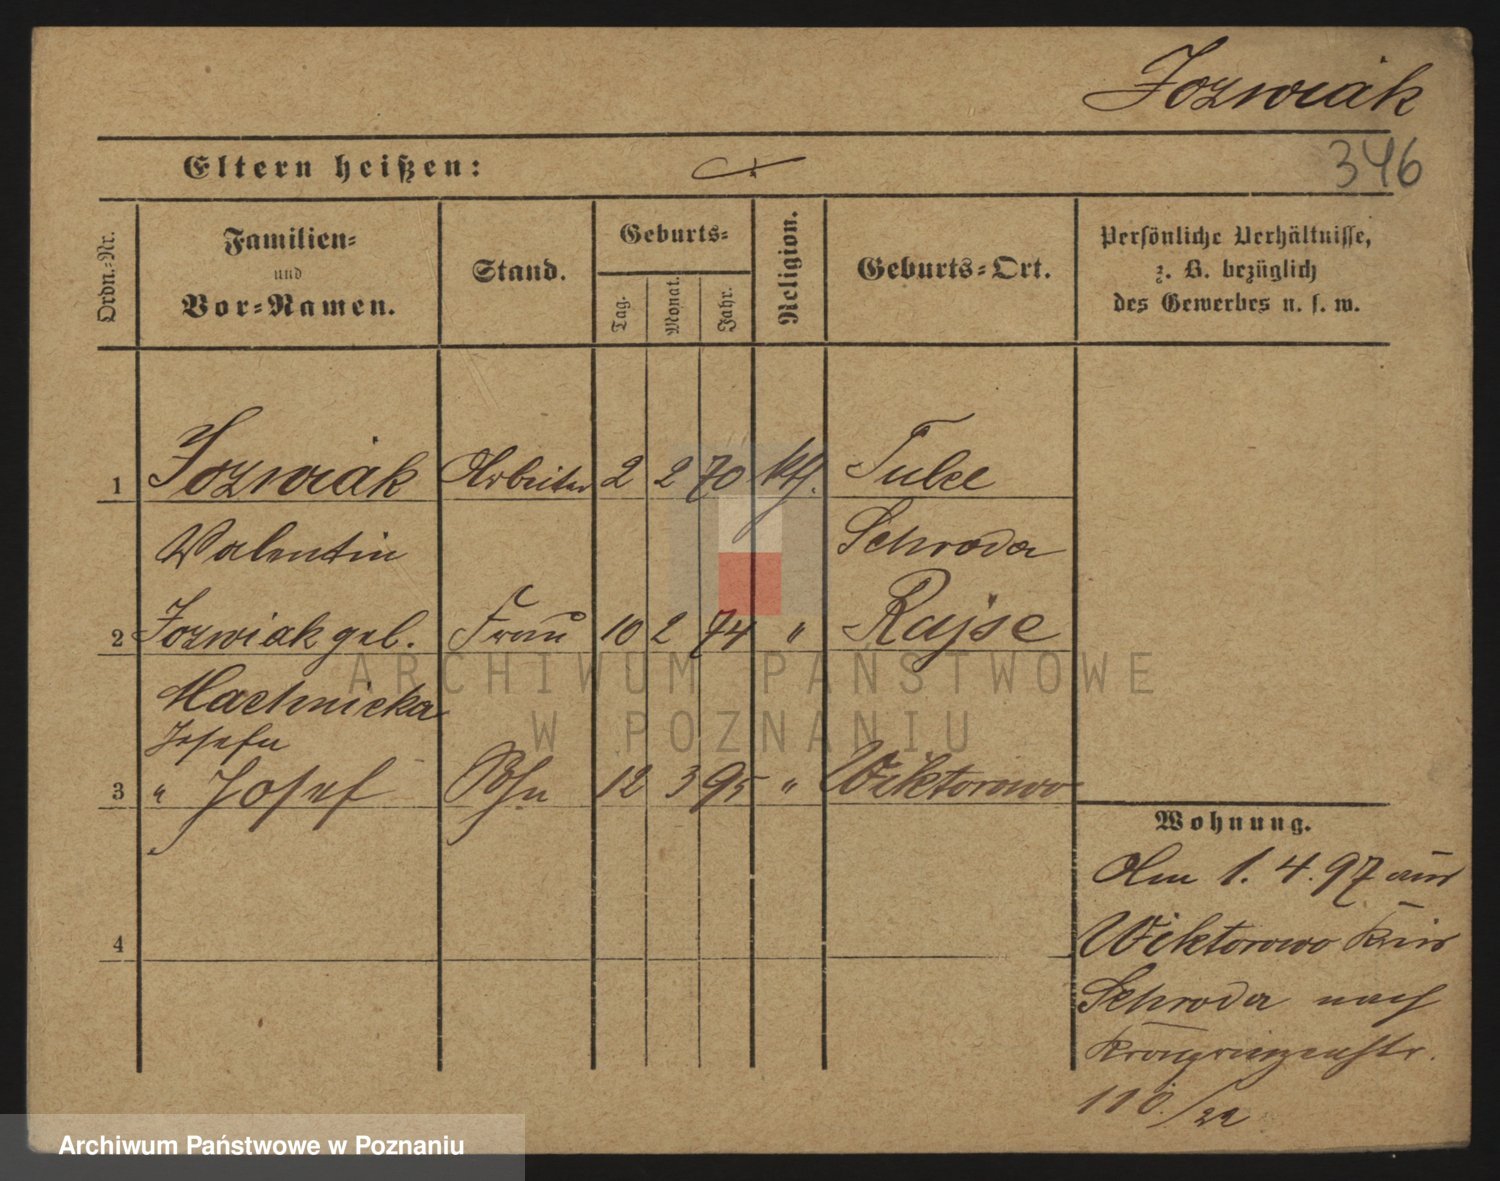 Jozwiak
346
Eltern heißen:
Ordn.-Nr.
Familien-
und
Vor-Namen.
Stand.
Geburts-
Tag.
Monat.
Jahr.
Religion.
Geburts-Ort.
Persönliche Verhältnisse,
z. B. bezüglich
des Gewerbes u. s. w.
1 Jozwiak Arbeiter 2 2 70 kth. Tulce
Valentin Schroda
2 Jozwiak geb. Frau 10 2 74 " Rajse
Machnicka
Josefa
3 " Josef Sohn 12 3 95 " Wiktorowo
4
Wohnung.
Am 1. 4. 97 aus
Wiktorowo Kreis
Schroda nach
Kronprinzenstr.
110
ARCHIWUM PAŃSTWOWE
W POZNANIU
Archiwum Państwowe w Poznaniu